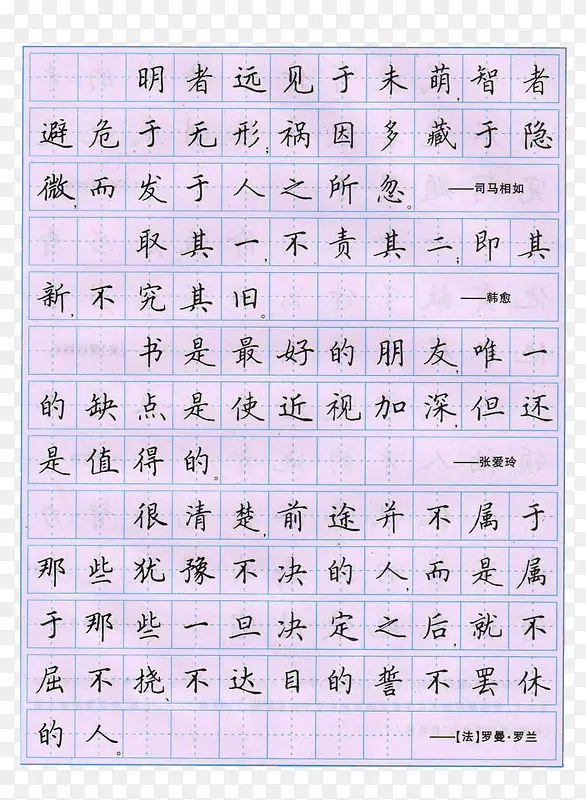 明者远见于未萌，智者
避危于无形；祸因多藏于隐
微，而发于人之所忽。——司马相如
取其一，不责其二；即其
新，不究其旧。——韩愈
书是最好的朋友，唯一
的缺点是使近视加深，但还
是值得的。——张爱玲
很清楚，前途并不属于
那些犹豫不决的人，而是属
于那些一旦决定之后，就不
屈不挠、不达目的誓不罢休
的人。——【法】罗曼·罗兰